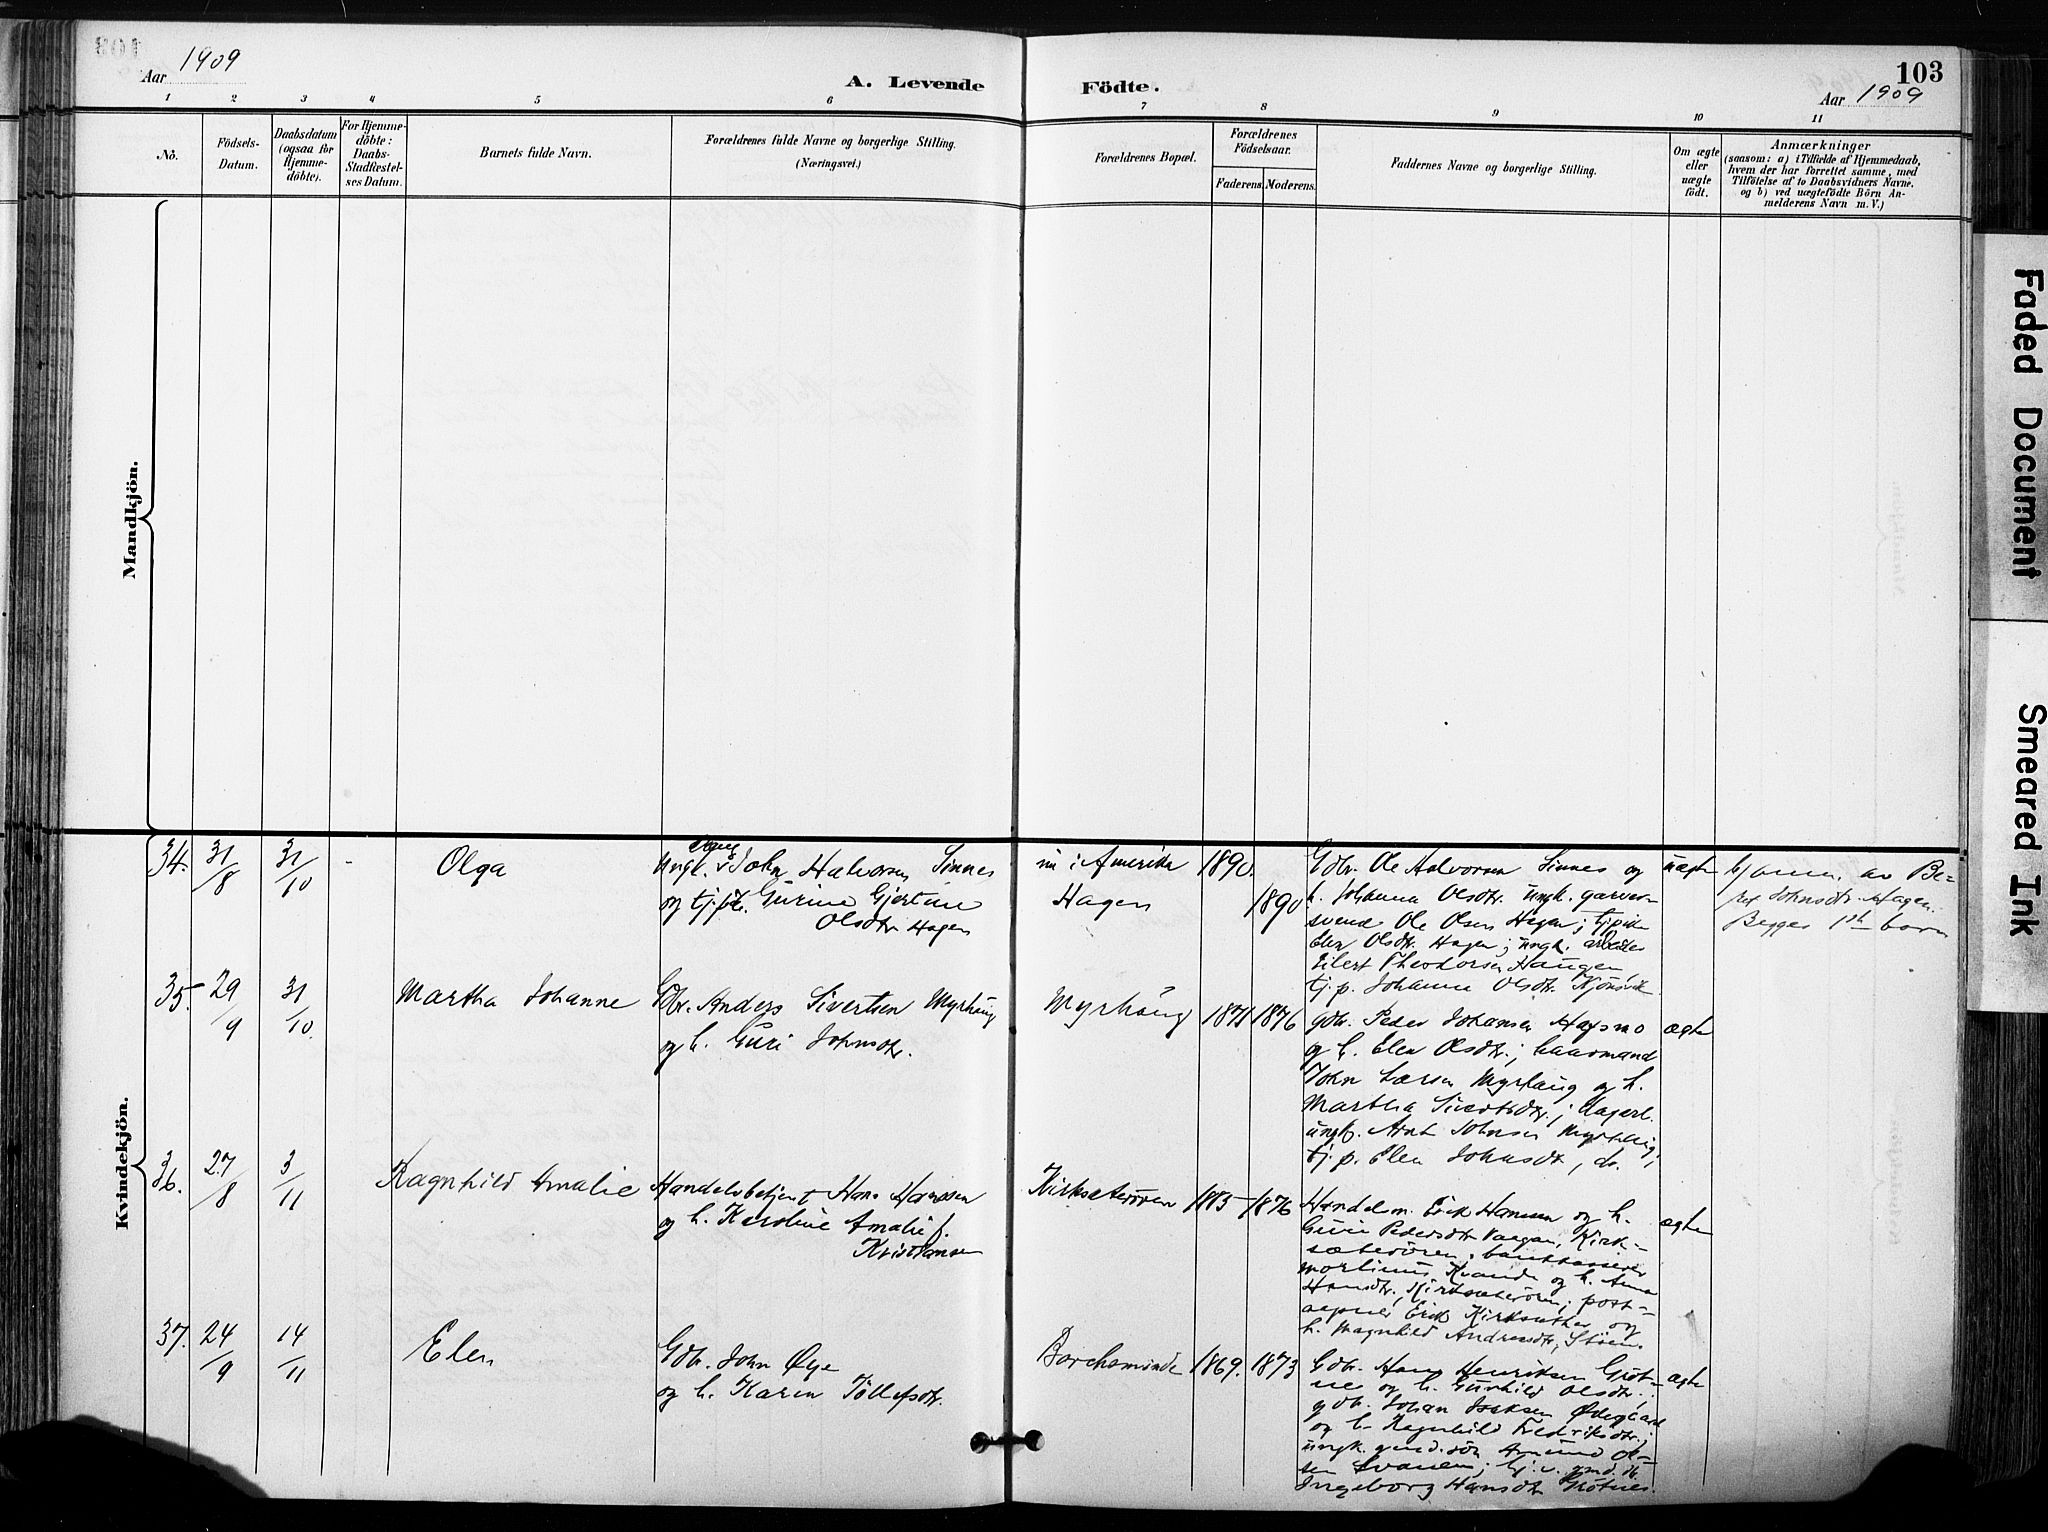 103
Aar 1909
A. Levende Födte.
Aar 1909
1 2 3 4 5 6 7 8 9 10 11
No.
Födsels-
Datum.
Daabsdatum
(ogsaa for
Hjemme-
döbte).
For Hjemme-
döbte:
Daabs-
Stadfæstel-
ses Datum.
Barnets fulde Navn.
Forældrenes fulde Navne og borgerlige Stilling.
(Næringsvei.)
Forældrenes Bopæl.
Forældrenes
Födselsaar.
Faderens. Moderens.
Faddernes Navne og borgerlige Stilling.
Om ægte
eller
uægte
födt.
Anmærkninger
(saasom: a) i Tilfælde af Hjemmedaab,
hvem der har forrettet samme, med
Tilföielse af to Daabsvidners Navne.
og b) ved uægtefödte Börn An-
melderens Navn m. V.)
Mandkjön.
Kvindekjön.
34. 31/8 31/10 - Olga
Ungk. John Halvorsen Sinnes
og tj.p. Gurine Gjertine
Olsdtr. Hagen
nu i Amerika
Hagen
1890.
1890
Gdbr. Ole Halvorsen Sinnes og
h. Johanna Olsdtr. ungk. garver-
svend Ole Olsen Hagen; tjpike
Elen Olsdtr. Hagen; ungk. arbeider
Eilert Theodorsen Haugen
tj.p. Johanna Olsdtr. Kjönsvik
uægte
b) anm. av Be-
ret Johnsdtr. Hagen.
Begges 1ste barn
35. 29/9 31/10. Martha Johanne
Gbr. Anders Sivertsen Myrhaug
og h. Guri Johnsdtr.
Myrhaug
1871 1876
Gdbr. Peder Johansen Hafsmo
og h. Elen Olsdtr.; kaarmand
John Larsen Myrhaug og h.
Martha Sivertsdtr.; dagarb.
ungk. Arnt Johnsen Myrhaug;
tj.p. Elen Johnsdtr, do.
ægte
36. 27/8 3/11 Ragnhild Amalie
Handelsbetjent Hans Hanssen
og h. Karoline Amalie f.
Kristiansen
Kirksæterören
1883 1876
Handelsm. Erik Hansen og h.
Guri Pedersdtr Vaagan, Kirk-
sæterören; bankkasserer
Martinus Kvande og h. Anna
Hansdtr, Kirksæterören; post-
aapner Erik Kirksæther og
h. Magnhild Andersdtr, Stöen.
ægte
37. 24/9 14/11 Elen
Gdb. John Øye
og h. Karen Tollefsdtr.
Borchsminde
1869. 1873
Gdbr. Hans Henriksen Gröt-
nes og h. Gunhild Olsdtr.;
gdbr. Johan Isaksen Ødegaard
og h. Ragnhild Fredriksdtr.;
ungk. gmd.sön Amund Ol-
sen Svanem; tj. v. gmd. d.
Ingeborg Hansdtr Grötnes.
ægte
Faded Document
Smeared Ink